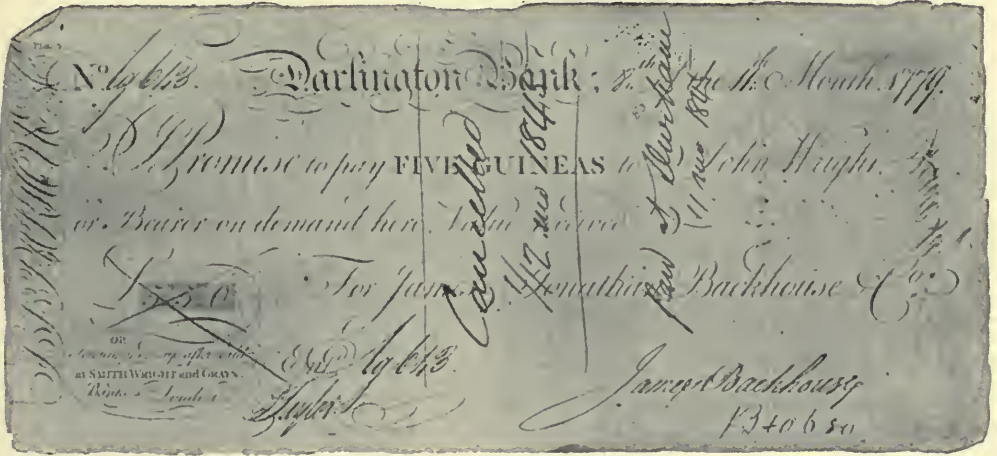 No lg 613. Darlington Bank; 8th the 11th Month 1779.
I Promise to pay FIVE GUINEAS to John Wright
or Bearer on demand here Value received
For James & Jonathan Backhouse & Co.
OR
at SMITH WRIGHT and GRAYS
Bankers London
Entd lg 613.
Taylor
James Backhouse
Cancelled
mo 184
Paid at Durham
11 mo 184